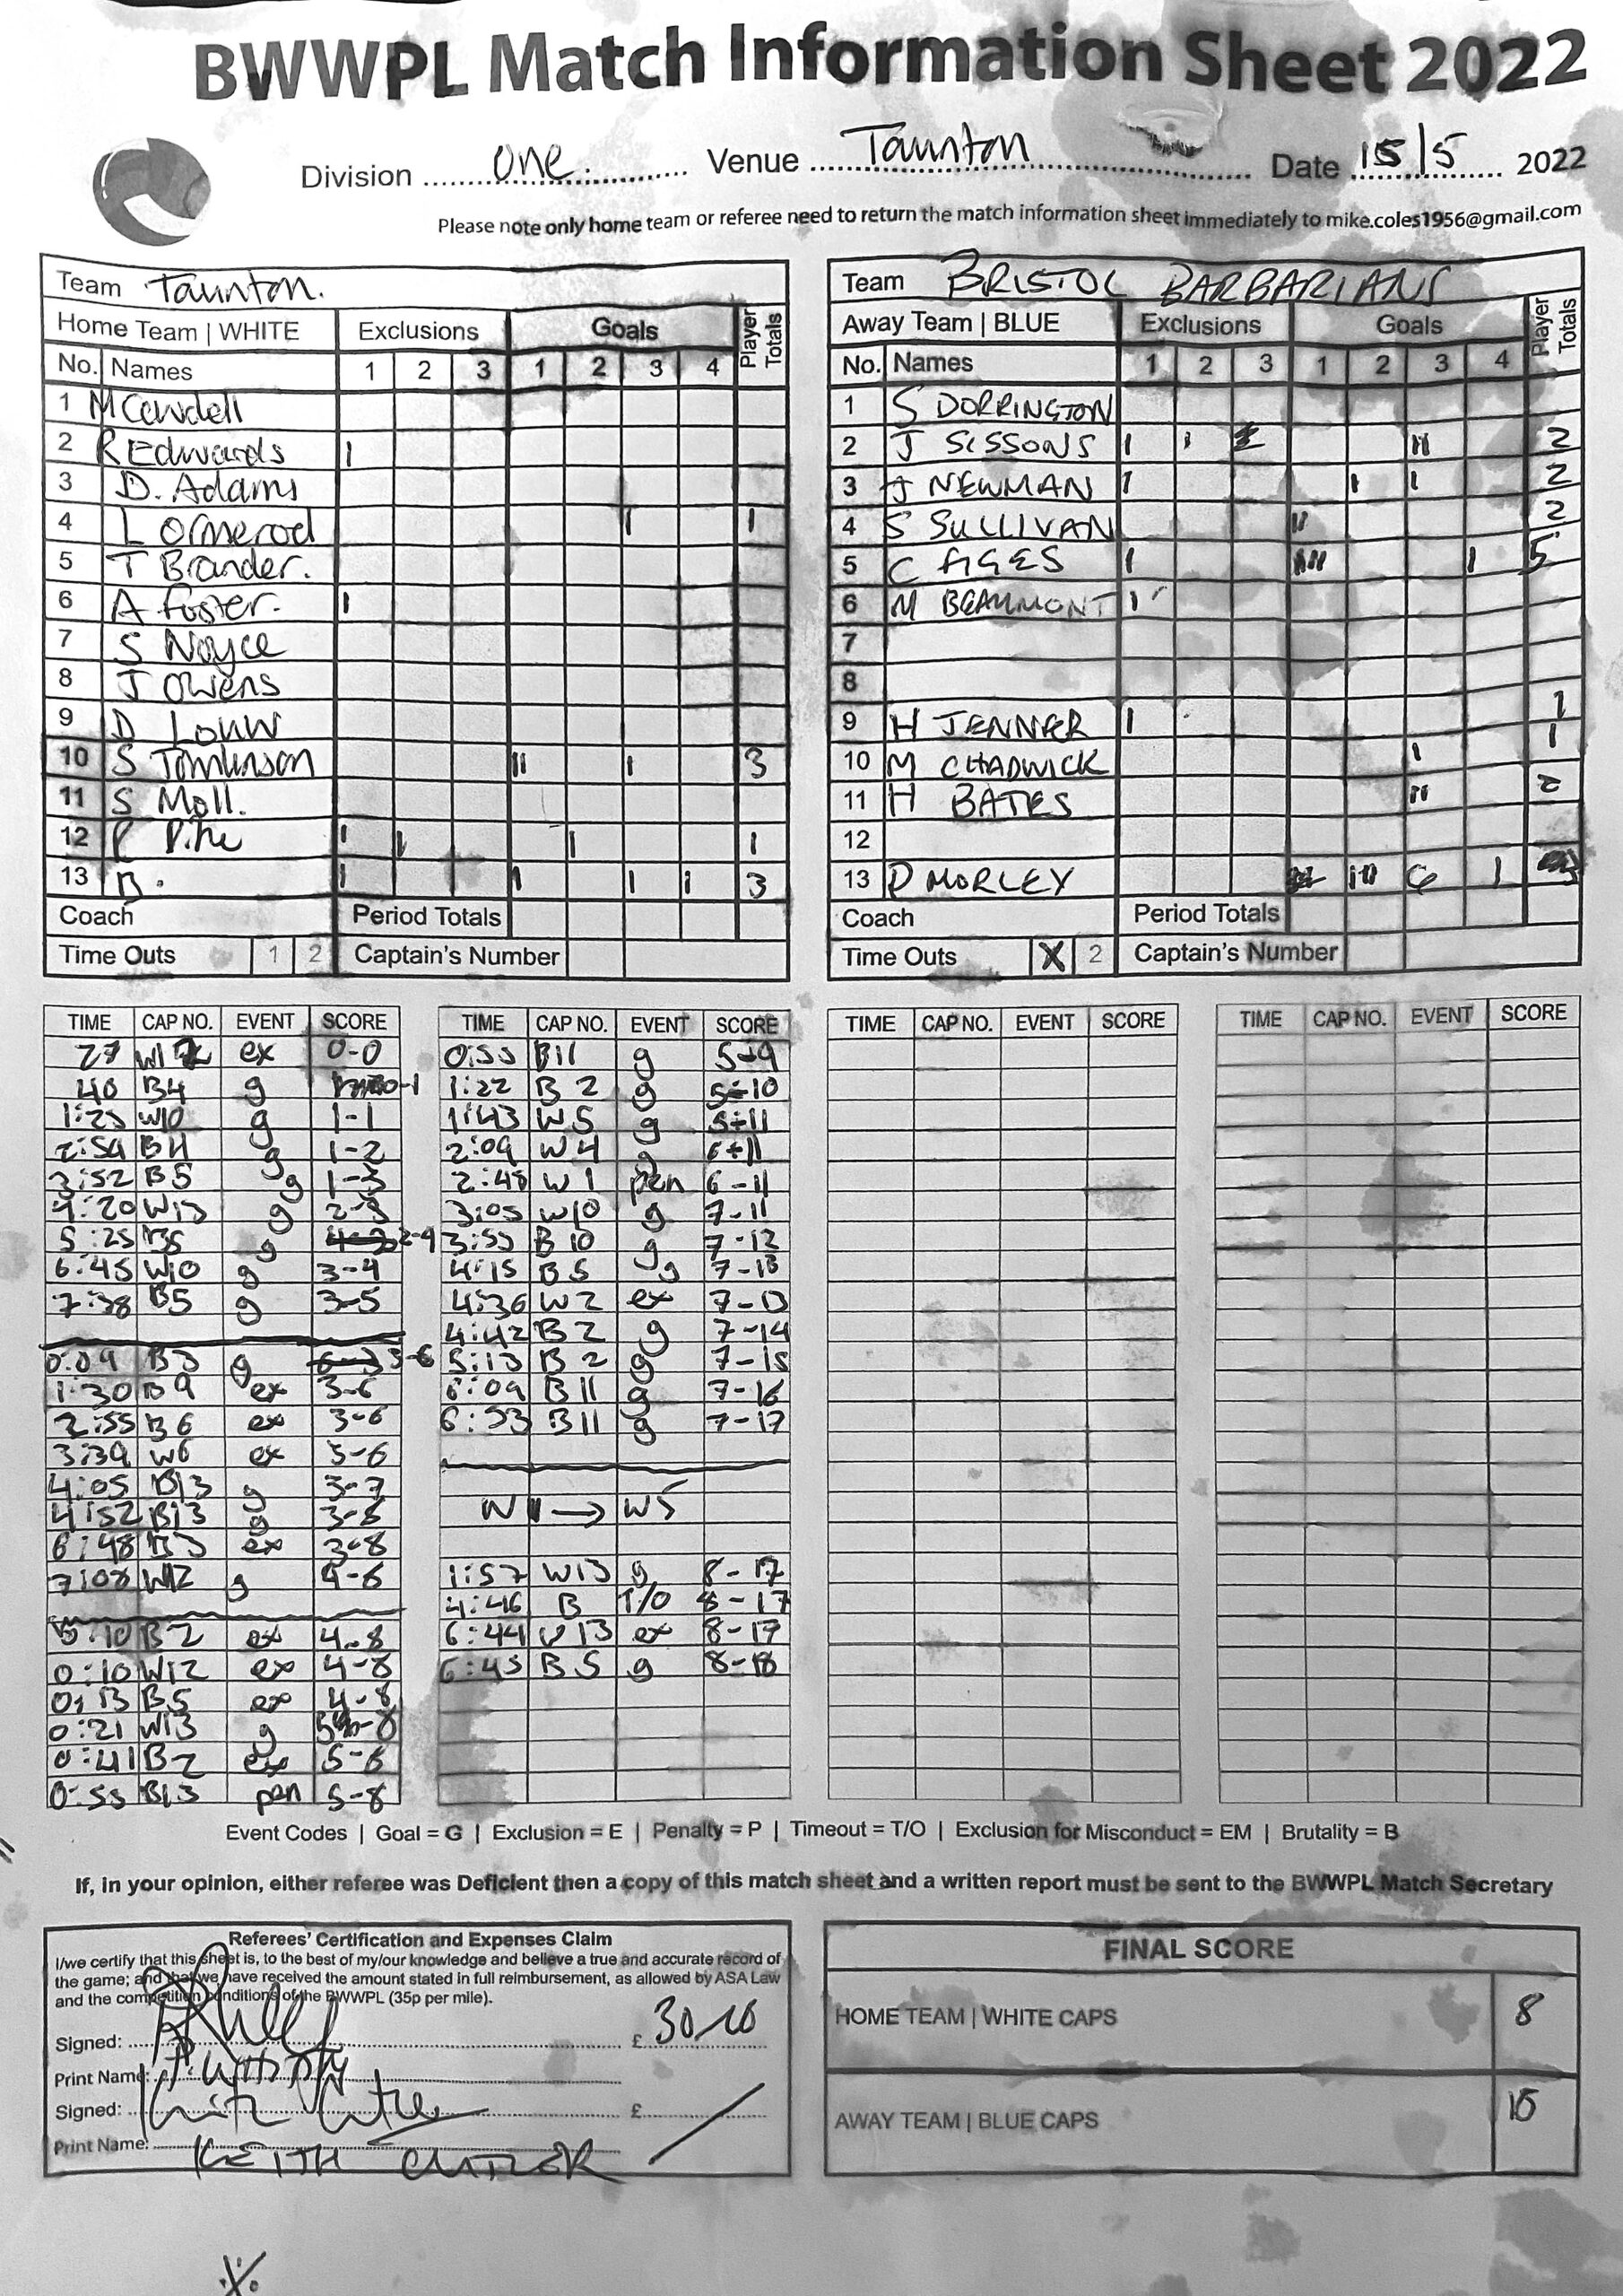 BWWPL Match Information Sheet 2022
Division one. Venue Taunton Date 15/5 2022
Please note only home team or referee need to return the match information sheet immediately to mike.coles1956@gmail.com
Team Taunton.
Home Team | WHITE Exclusions Goals Player Totals
No. Names 1 2 3 1 2 3 4
1
2 R Edwards I
3 D. Adams
4 L Ormerod I 1
5 T Brander.
6 A Foster. I
7 S Noyce
8 J Owens
9 D Louw
10 S Tomlinson II I 3
11 S Moll.
12 P I I I 1
13 B. I I I I 3
Coach Period Totals
Time Outs 1 2 Captain's Number
Team BRISTOL BARBARIANS
Away Team | BLUE Exclusions Goals Player Totals
No. Names 1 2 3 1 2 3 4
1 S DORRINGTON
2 J SISSONS I I II 2
3 J NEWMAN I I I 2
4 S SULLIVAN II 2
5 C FIGES I IIII I 5
6 M BEAUMONT I
7
8
9 H JENNER I 1
10 M CHADWICK I 1
11 H BATES II 2
12
13 D MORLEY III 6 I
Coach Period Totals
Time Outs X 2 Captain's Number
TIME CAP NO. EVENT SCORE
27 W12 ex 0-0
40 B4 g 0-1
1:23 W10 g 1-1
2:54 B4 g 1-2
3:52 B5 g 1-3
4:20 W13 g 2-3
5:25 B5 g 2-4
6:45 W10 g 3-4
7:38 B5 g 3-5
0:09 B3 g 3-6
1:30 B9 ex 3-6
2:55 B6 ex 3-6
3:39 W6 ex 3-6
4:05 B13 g 3-7
4:52 B13 g 3-8
6:48 B3 ex 3-8
7:08 W12 g 4-8
0:10 B2 ex 4-8
0:10 W12 ex 4-8
0:13 B5 ex 4-8
0:21 W13 g 5-8
0:41 B2 ex 5-8
0:55 B13 pen 5-8
TIME CAP NO. EVENT SCORE
0:55 B11 g 5-9
1:22 B2 g 5-10
1:43 W5 g 5-11
2:09 W4 g 6-11
2:48 W1 pen 6-11
3:05 W10 g 7-11
3:55 B10 g 7-12
4:15 B5 g 7-13
4:36 W2 ex 7-13
4:42 B2 g 7-14
5:13 B2 g 7-15
6:09 B11 g 7-16
6:53 B11 g 7-17
W1 → W5
1:57 W13 g 8-17
4:46 B T/O 8-17
6:44 W13 ex 8-17
6:45 B5 g 8-18
TIME CAP NO. EVENT SCORE
TIME CAP NO. EVENT SCORE
Event Codes | Goal = G | Exclusion = E | Penalty = P | Timeout = T/O | Exclusion for Misconduct = EM | Brutality = B
If, in your opinion, either referee was Deficient then a copy of this match sheet and a written report must be sent to the BWWPL Match Secretary
Referees' Certification and Expenses Claim
I/we certify that this sheet is, to the best of my/our knowledge and believe a true and accurate record of
the game; and that we have received the amount stated in full reimbursement, as allowed by ASA Law
and the competition conditions of the BWWPL (35p per mile).
Signed: £
Print Name:
Signed: £
Print Name: KEITH CUTLER
FINAL SCORE
HOME TEAM | WHITE CAPS 8
AWAY TEAM | BLUE CAPS 18